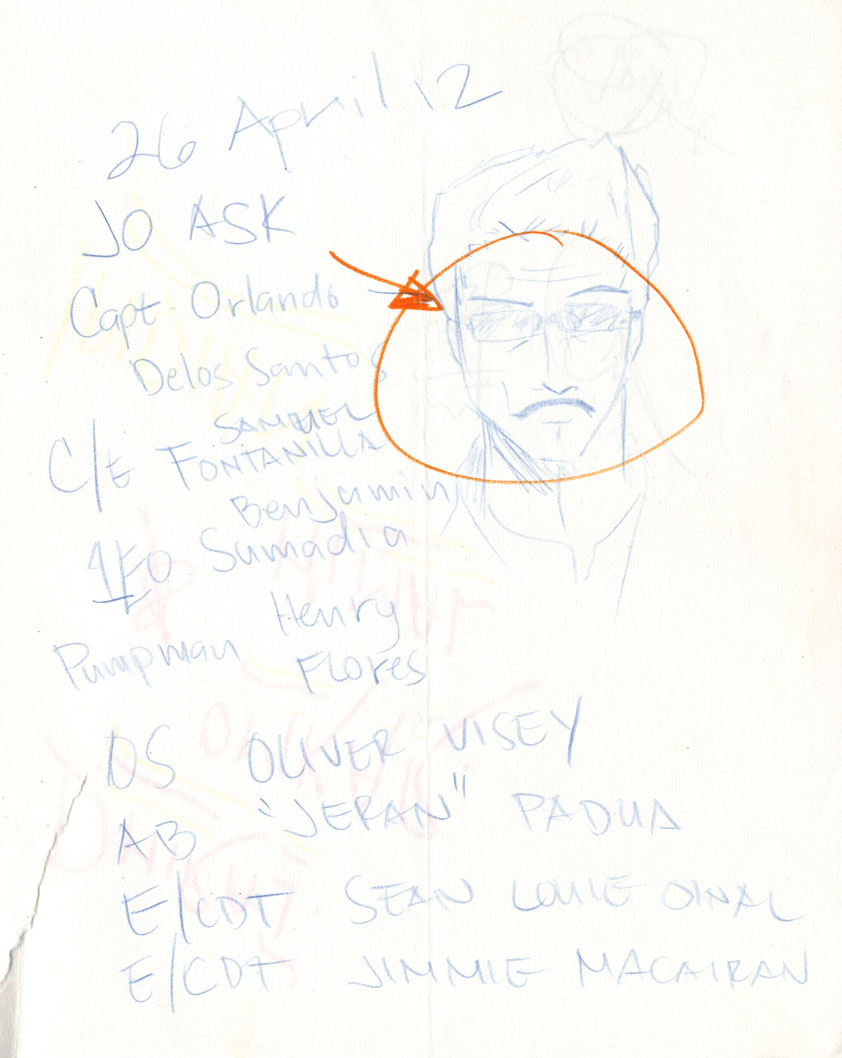 26 April 12
JO ASK
Capt. Orlando
Delos Santos
SAMUEL
C/E FONTANILLA
Benjamin
1EO Sumadia
Henry
Pumpman Flores
DS OLIVER VISEY
AB "JERAN" PADUA
E/CDT SEAN LOUIE OINAL
E/CDT JIMMIE MACAIRAN